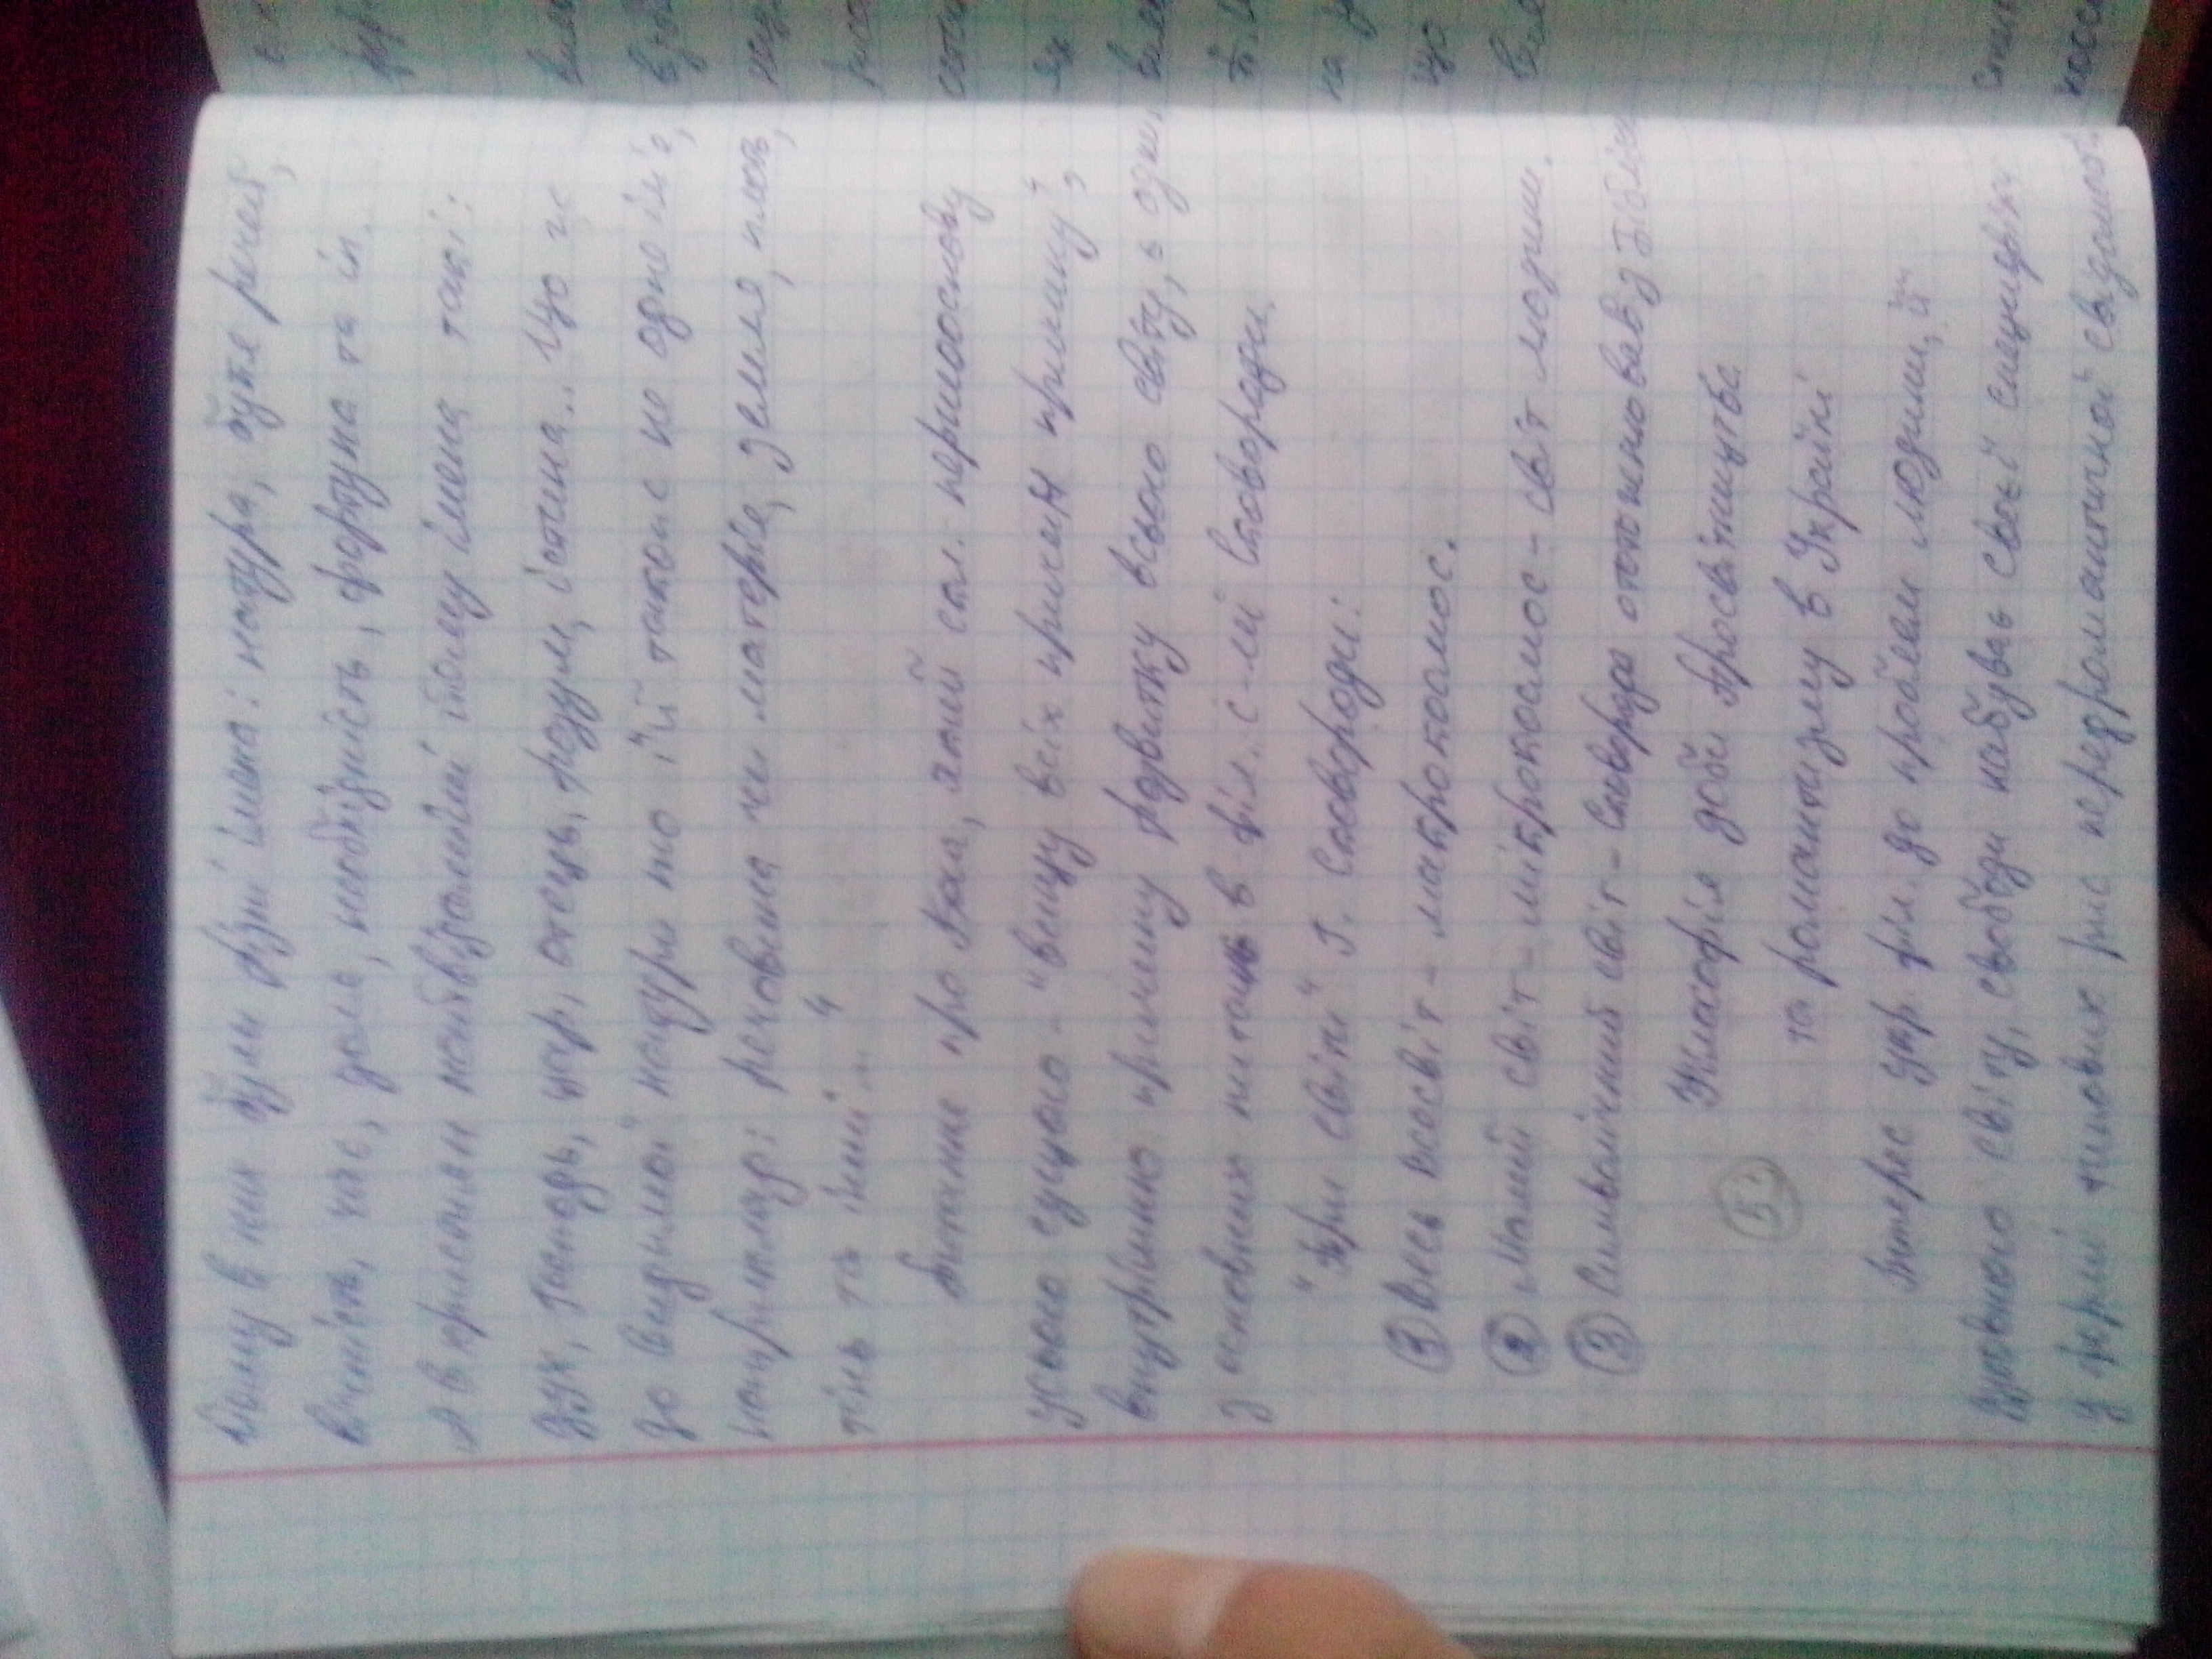 Йому в них були різні імена: натура, буття речей,
вічність, час, доля, необхідність, фортуна та ін.
А в християн найвідоміші йому імена такі:
дух, Господь, цар, отець, розум, істина.. Що ж
до видимої натури то їй також не одне ім'я,
наприклад: речовина чи матерія, земля, плоть,
тінь та інші..."
Питання про , який скл. першооснову
усього сущого - "вищу всіх причин причину",
внутрішню причину розвитку всього світу, є одним
з основних питань в філ. с-мі Сковороди.
"Три світи" Г. Сковороди:
① Весь всесвіт - макрокосмос.
② Малий світ - мікрокосмос - світ людини.
③ Символічний світ - Сковорода ототожнював з Біблією
Філософія доби Просвітництва
та романтизму в Україні
Інтерес укр. філ. до проблем людини, її
духовного світу, свободи набуває своєї специфіки
у формі типових рис передромантичної свідомості